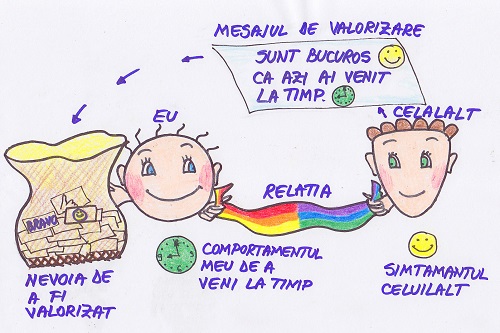 MESAJUL DE VALORIZARE
SUNT BUCUROS
CA AZI AI VENIT
LA TIMP.
EU
CELALALT
RELATIA
BRAVO
COMPORTAMENTUL
MEU DE A
VENI LA TIMP
NEVOIA DE
A FI
VALORIZAT
SIMTAMANTUL
CELUILALT